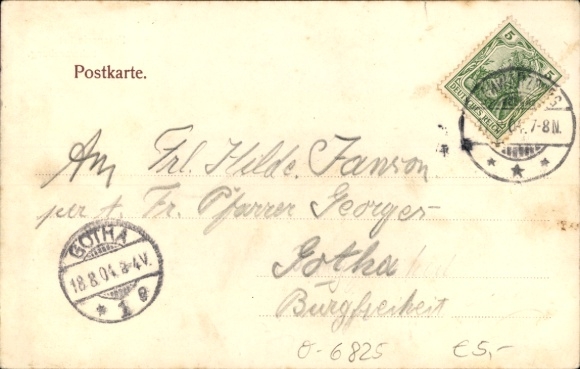 Postkarte.
5 5
DEUTSCHES REICH
7-8N.
An Frl. Hilde Janson
per A. Fr. Pfarrer Georges
Gotha
Burgfreiheit
GOTHA
18.8.04. 3-4V.
* 1 e
O-6825 €5,-